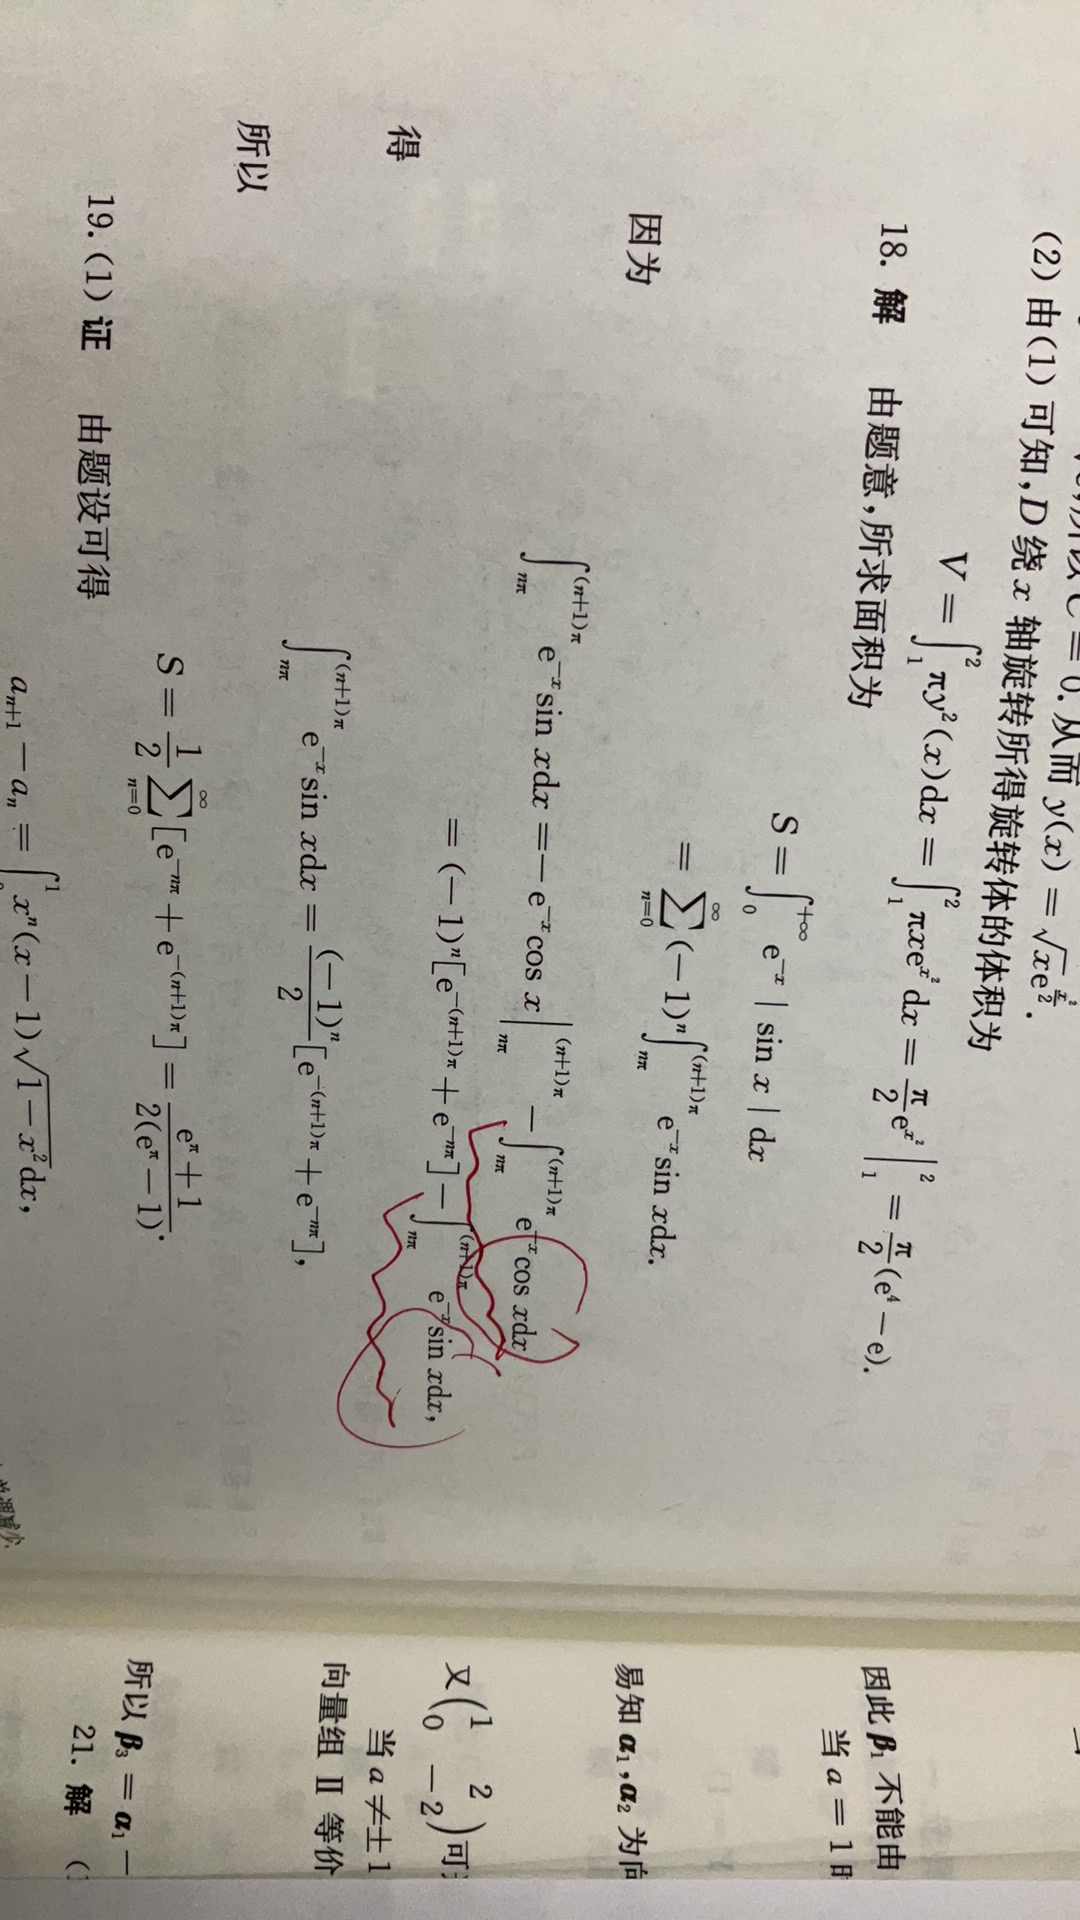 (2) 由(1)可知, D 绕 x 轴旋转所得旋转体的体积为
V = ∫₁² πy²(x)dx = ∫₁² πxe^{x²}dx = π/2 e^{x²} |₁² = π/2 (e⁴ − e).
18. 解 由题意,所求面积为
S = ∫₀^{+∞} e^{−x} | sin x | dx
= ∑_{n=0}^{∞} (−1)ⁿ ∫_{nπ}^{(n+1)π} e^{−x} sin xdx.
因为
∫_{nπ}^{(n+1)π} e^{−x} sin xdx = − e^{−x} cos x |_{nπ}^{(n+1)π} − ∫_{nπ}^{(n+1)π} e^{−x} cos xdx
= (−1)ⁿ[e^{−(n+1)π} + e^{−nπ}] − ∫_{nπ}^{(n+1)π} e^{−x} sin xdx,
得
∫_{nπ}^{(n+1)π} e^{−x} sin xdx = (−1)ⁿ/2 [e^{−(n+1)π} + e^{−nπ}],
所以
S = 1/2 ∑_{n=0}^{∞} [e^{−nπ} + e^{−(n+1)π}] = (e^π + 1)/(2(e^π − 1)).
19. (1) 证 由题设可得
a_{n+1} − a_n = ∫₀¹ xⁿ(x − 1)√(1 − x²)dx,
因此 β₁ 不能由
当 a = 1
易知 α₁, α₂ 为向
又(1 2
0 −2)可
当 a ≠ ±1
向量组 Ⅱ 等价
所以 β₃ = α₁ −
21. 解 (